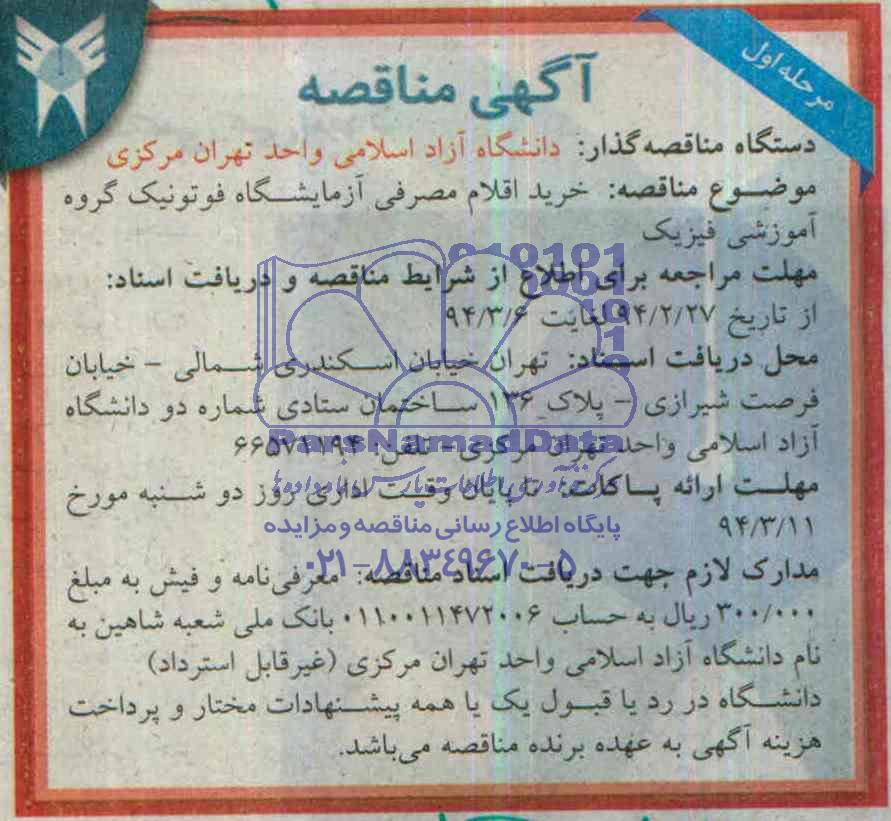 مرحله اول
آگهی مناقصه
دستگاه مناقصه گذار: دانشگاه آزاد اسلامی واحد تهران مرکزی
موضوع مناقصه: خرید اقلام مصرفی آزمایشگاه فوتونیک گروه
آموزشی فیزیک
مهلت مراجعه برای اطلاع از شرایط مناقصه و دریافت اسناد:
از تاریخ ۹۴/۲/۲۷ لغایت ۹۴/۳/۶
محل دریافت اسناد: تهران خیابان اسکندری شمالی - خیابان
فرصت شیرازی - پلاک ۱۳۶ ساختمان ستادی شماره دو دانشگاه
آزاد اسلامی واحد تهران مرکزی - تلفن: ۶۶۵۷۱۱۹۴
ParsNamadData
مهلت ارائه پاکات: تا پایان وقت اداری روز دو شنبه مورخ
۹۴/۳/۱۱
پایگاه اطلاع رسانی مناقصه و مزایده
۰۲۱-۸۸۳۴۹۶۷۰-۵
مدارک لازم جهت دریافت اسناد مناقصه: معرفی‌نامه و فیش به مبلغ
۳۰۰/۰۰۰ ریال به حساب ۰۱۱۰۰۱۱۴۷۲۰۰۶ بانک ملی شعبه شاهین به
نام دانشگاه آزاد اسلامی واحد تهران مرکزی (غیرقابل استرداد)
دانشگاه در رد یا قبول یک یا همه پیشنهادات مختار و پرداخت
هزینه آگهی به عهده برنده مناقصه می‌باشد.